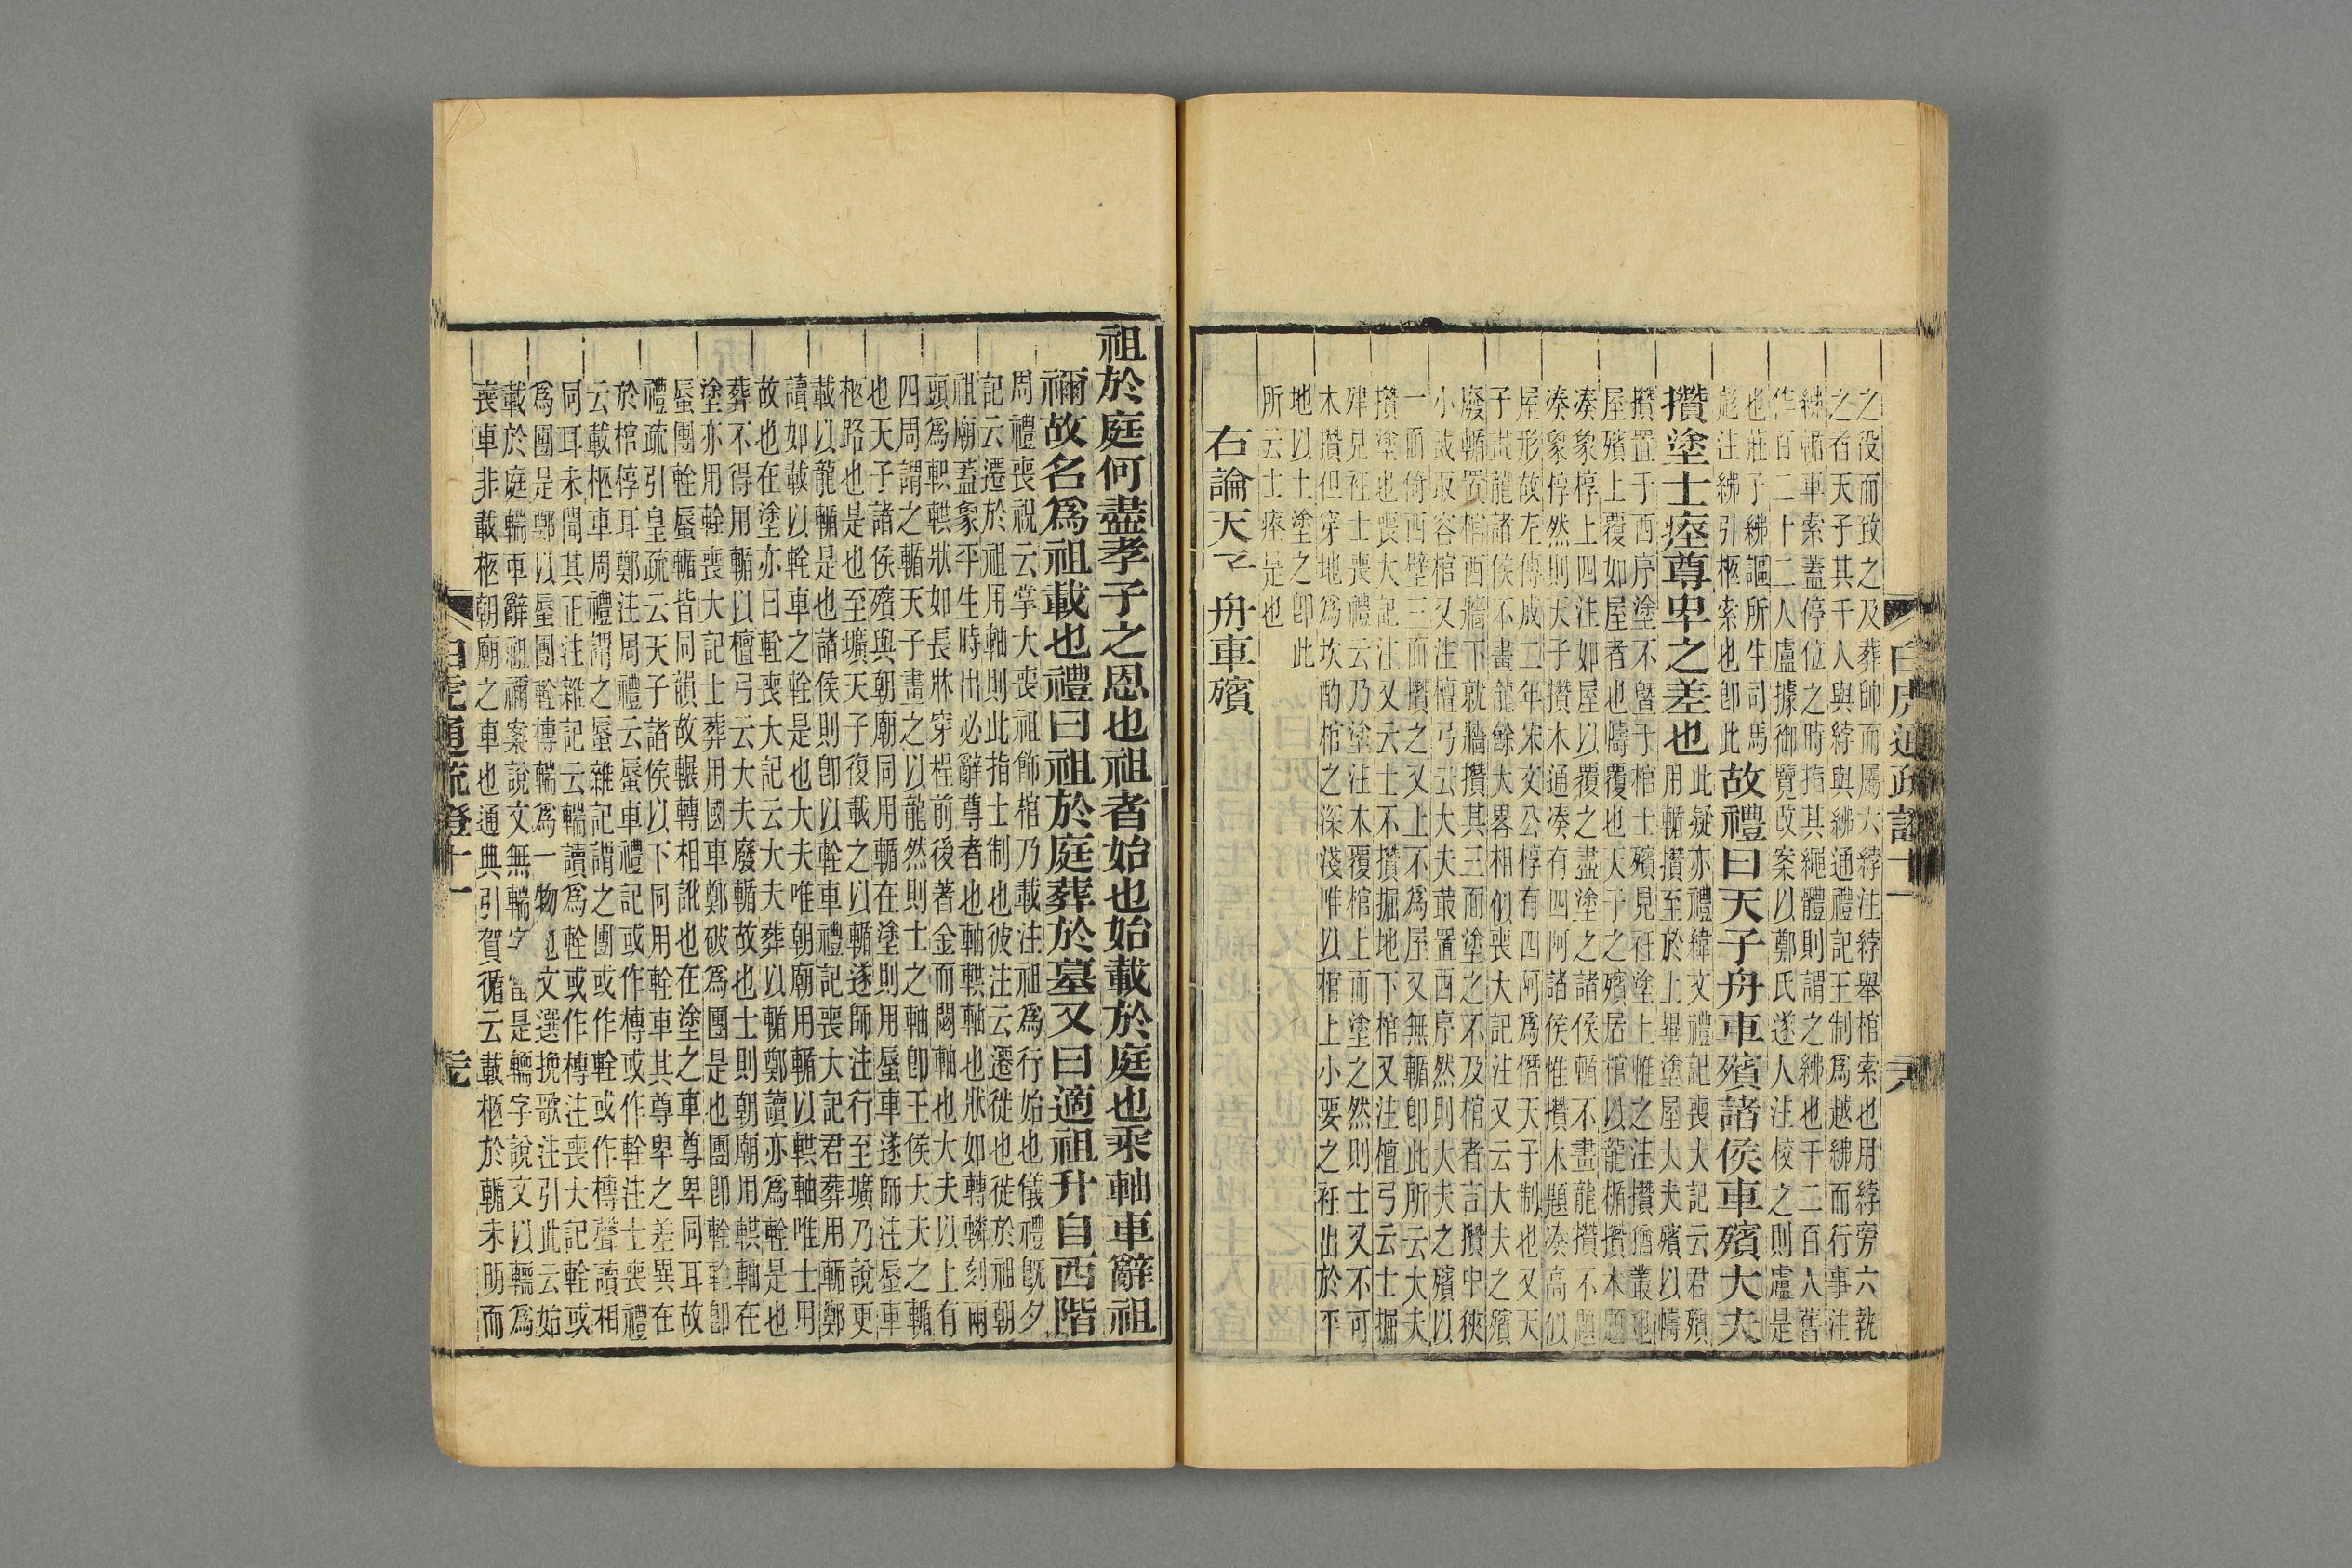 之役而致之及葬帥而屬六綍注綍舉棺索也用綍旁六執
之者天子其千人與綍與紼通禮記王制爲越紼而行事注
紼輴車索蓋停位之時指其繩體則謂之紼也千二百人舊
作百二十二人盧據御覽改案以鄭氏遂人注校之則盧是
也莊子紼謳所生司馬
彪注紼引柩索也卽此
故禮曰天子舟車殯諸侯車殯大夫
攢塗士瘞尊卑之差也
此疑亦禮緯文禮記喪大記云君殯
用輴攢至於上畢塗屋大夫殯以幬
攢置于西序塗不曁于棺士殯見衽塗上帷之注攢猶叢也
屋殯上覆如屋者也幬覆也天子之殯居棺以龍楯攢木題
湊象椁上四注如屋以覆之盡塗之諸侯輴不畫龍攢不題
湊象椁然則天子攢木通湊有四阿諸侯惟攢木題湊高似
屋形故左傳成二年宋文公椁有四阿爲僭天子制也又天
子畫龍諸侯不畫龍餘大畧相似喪大記注又云大夫之殯
廢輴置棺西牆下就牆攢其三面塗之不及棺者言攢中狹
小裁取容棺又注檀弓云大夫菆置西序然則大夫之殯以
一面倚西壁三面攢之又上不爲屋又無輴卽此所云大夫
攢塗也喪大記注又云士不攢掘地下棺又注檀弓云士掘
肂見衽士喪禮云乃塗注木覆棺上而塗之然則士又不可
木攢但穿地爲坎酌棺之深淺唯以棺上小要之衽出於平
地以土塗之卽此
所云士瘞是也
右論天子舟車殯
白虎通疏證十一
祖於庭何盡孝子之恩也祖者始也始載於庭也乘軸車辭祖
禰故名爲祖載也禮曰祖於庭葬於墓又曰適祖升自西階
周禮喪祝云掌大喪祖飾棺乃載注祖爲行始也儀禮旣夕
記云遷於祖用軸則此指士制也彼注云遷徙也徙於祖朝
祖廟蓋象平生時出必辭尊者也軸輁軸也狀如轉轔刻兩
頭爲軹輁狀如長牀穿桯前後著金而關軸也大夫以上有
四周謂之輴天子畫之以龍然則士之軸卽王侯大夫之輴
也天子諸侯殯與朝廟同用輴在塗則用蜃車遂師注蜃車
柩路也是也至壙天子復載之以輴遂師注行至壙乃說更
載以龍輴是也諸侯則卽以輇車禮記喪大記君葬用輴鄭
讀如載以輇車之輇是也大夫唯朝廟用輴以輁軸唯士用
故也在塗亦曰輇喪大記云大夫葬以輴鄭讀亦爲輇是也
葬不得用輴以檀弓云大夫廢輴故也士則朝廟用輁軸在
塗亦用輇喪大記士葬用國車鄭破爲團是也團卽輇輇卽
蜃團輇蜃輴皆同韻故輾轉相訛也在塗之車尊卑同耳故
禮疏引皇疏云天子諸侯以下同用輇車其尊卑之差異在
於棺椁耳鄭注周禮云蜃車禮記或作槫或作輇注士喪禮
云載柩車周禮謂之蜃雜記謂之團或作輇或作槫聲讀相
同耳未聞其正注雜記云輲讀爲輇或作槫注喪大記輇或
爲團是鄭以蜃團輇槫輲爲一物也文選挽歌注引此云始
載於庭輲車辭祖禰案說文無輲字當是轜字說文以轜爲
喪車非載柩朝廟之車也通典引賀循云載柩於輴未明而
白虎通疏證十一